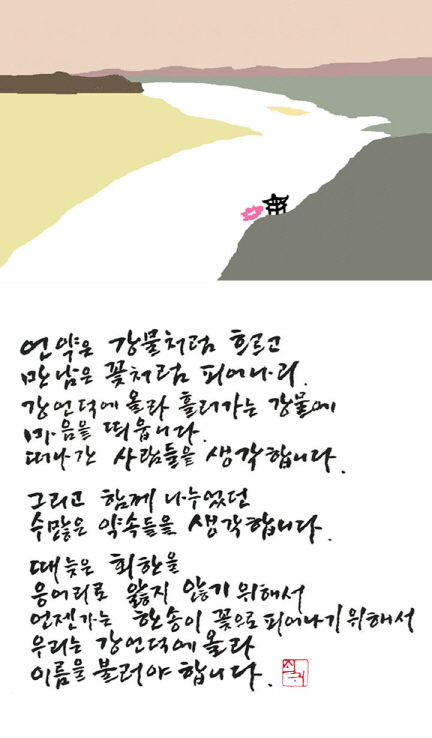 언약은 강물처럼 흐르고
만남은 꽃처럼 피어나리.
강언덕에 올라 흘러가는 강물에
마음을 띄웁니다.
떠나간 사람들을 생각합니다.
그리고 함께 나누었던
수많은 약속들을 생각합니다.
때늦은 회한을
응어리로 앓지 않기 위해서
언젠가는 한송이 꽃으로 피어나기 위해서
우리는 강언덕에 올라
이름을 불러야 합니다.